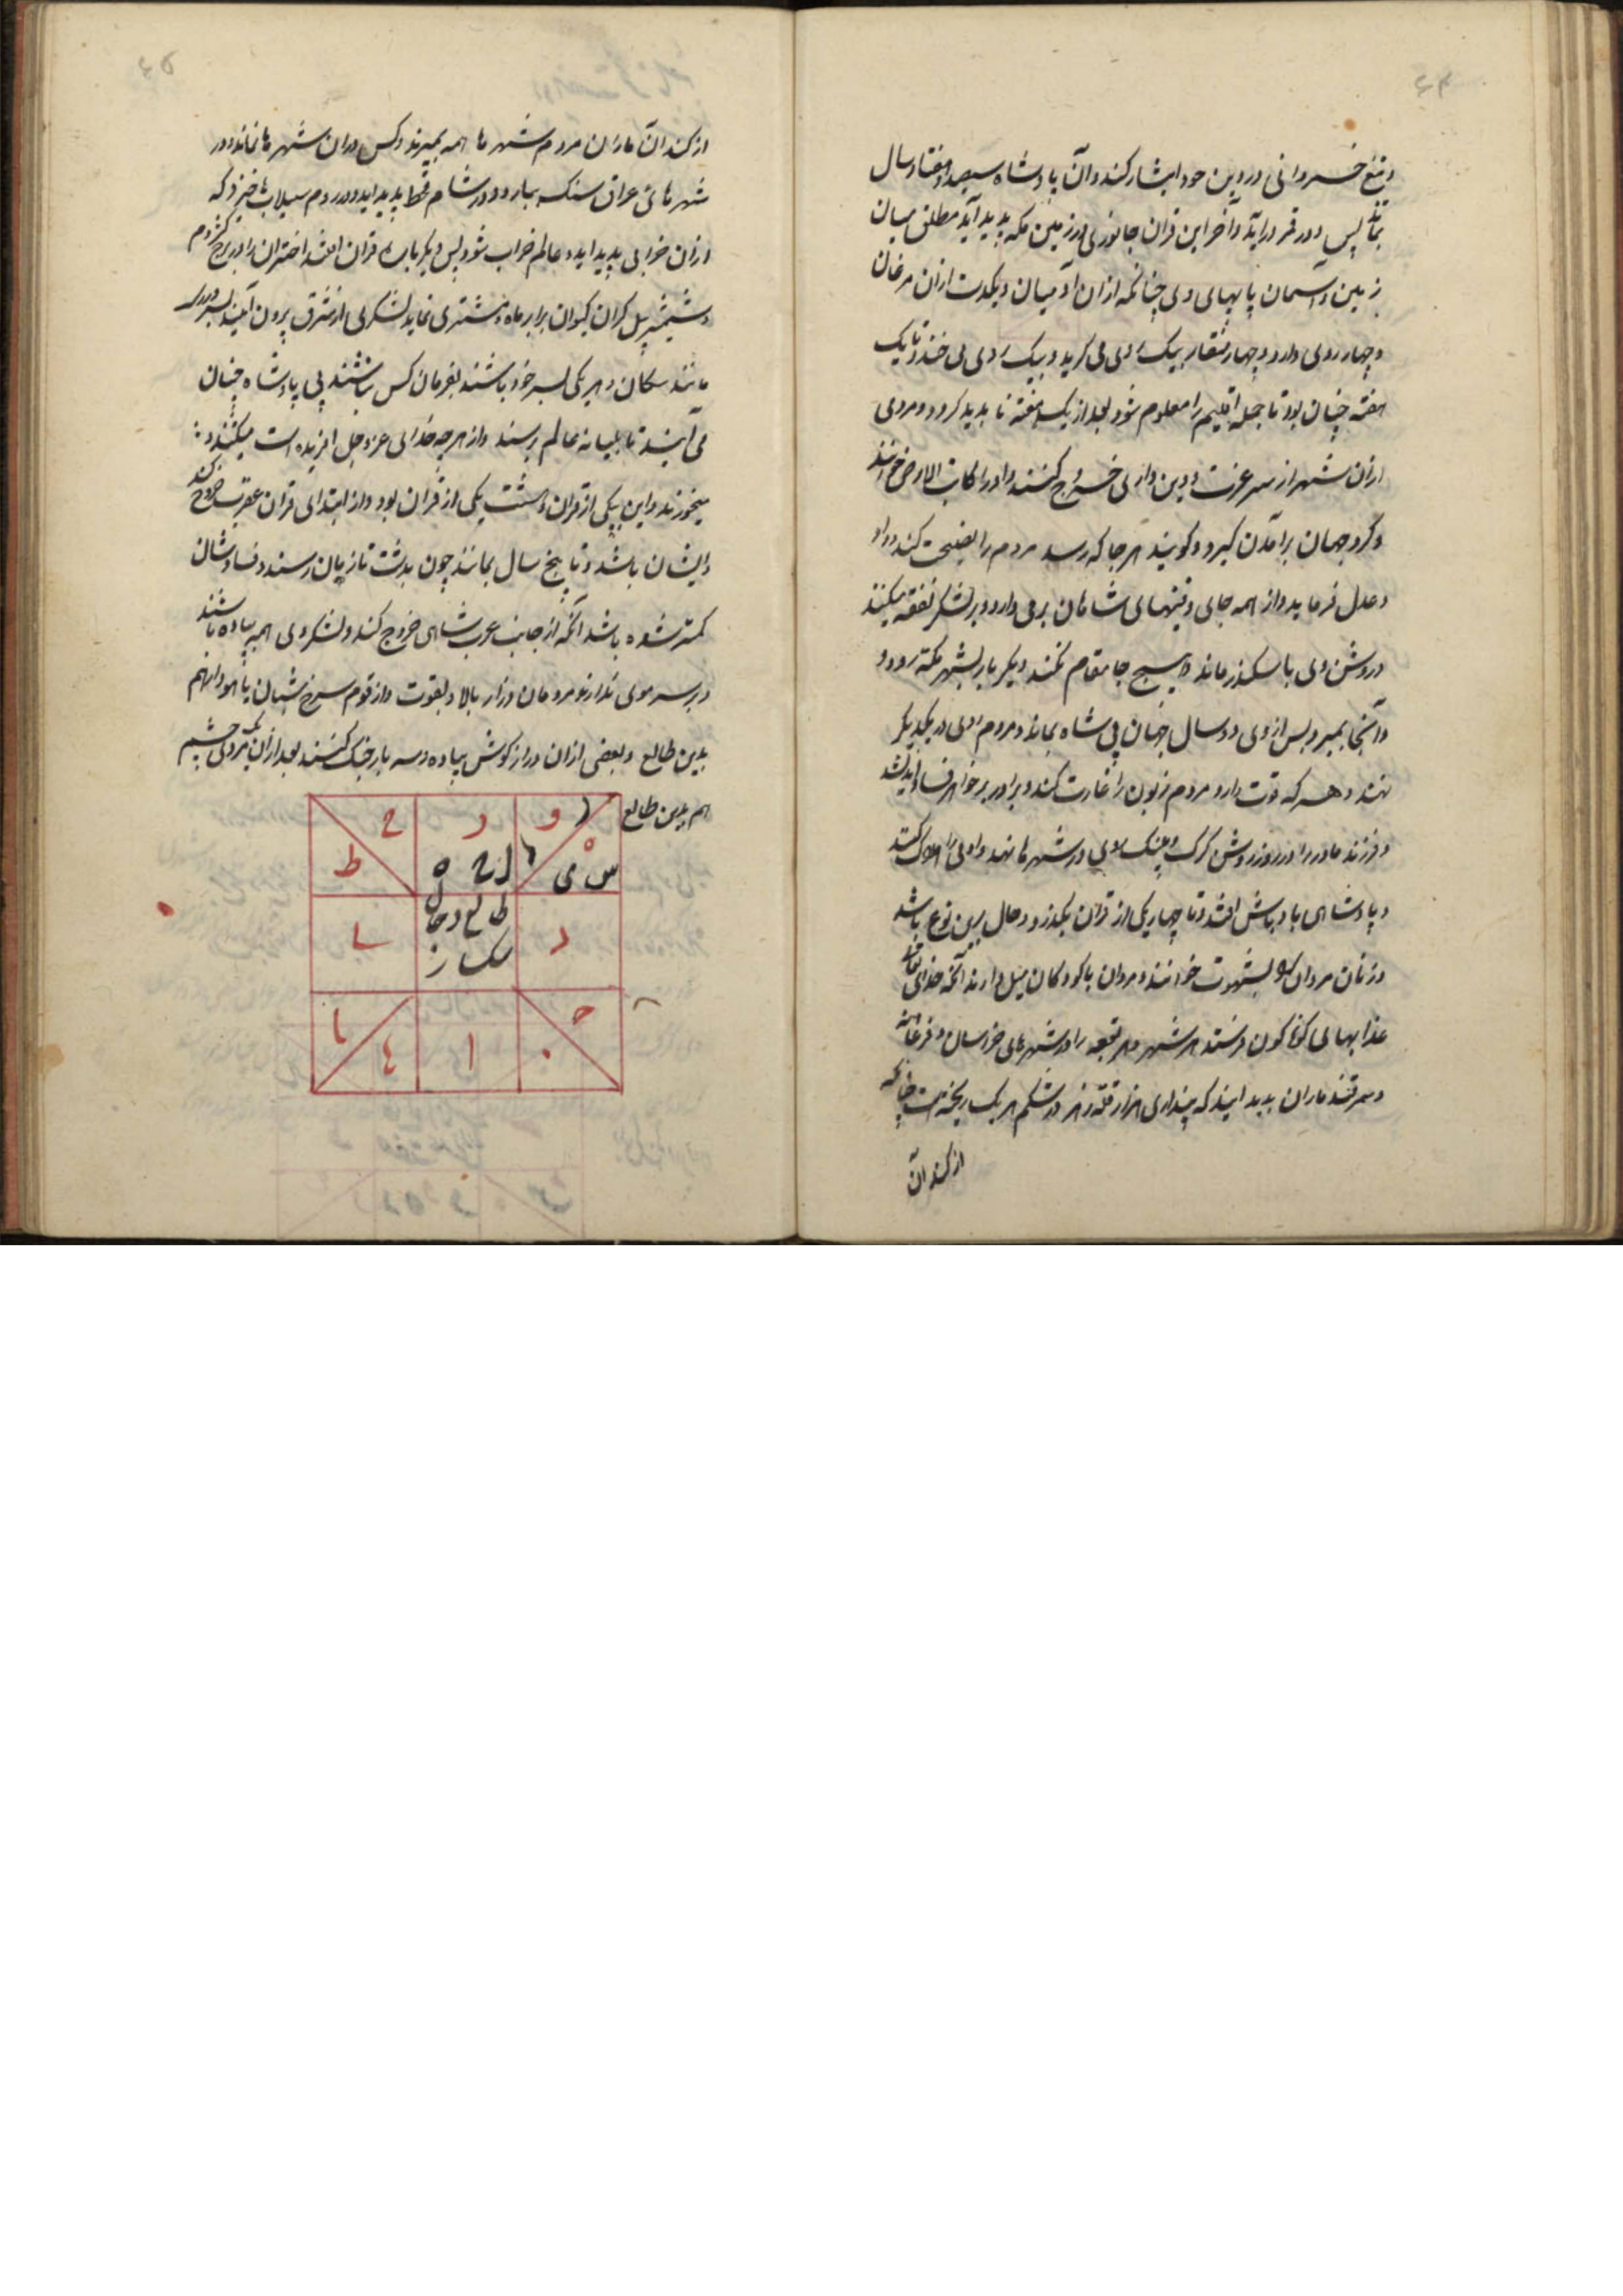 و تیغ خسروانی در دین خود ایشار کند و آن پادشاه سیصد و هفتاد سال
بماند پس و در قمر درآید و آخر این قران جانوری در زمین مکه پدید آید مطلق میان
زمین و آسمان پایهای وی چنانکه از آن آدمیان و یکدست از آن مرغان
و چهار روی دارد و چهار منقار بیک روی می کرید و بیک روی می خندد تا یک
هفته چنان بود تا جمله اقلیم را معلوم شود بعد از یک هفته نا بدید کردد و مردی
از آن شهر از سر عزت و دین داری خروج کنند و او را کاتب الارض خوانند
و کرد جهان برآمدن کیرد و کویند هر جا که رسد مردم را نصیحت کند و داد
و عدل فرماید و از همه جای دفینهای شاهان برمی دارد و بر لشکر نفقه میکنند
و روش وی باسکندر ماند و هیچ جا مقام نکند دیکر بار بشهر مکه رود و
و آنجا بمیرد پس از وی دو سال جهان بی شاه بماند و مردم روی در یکدیکر
نهند و هر که قوت دارد مردم زبون را غارت کند و برادر بر خواهر فساد اندیشد
و فرزند مادر را در روز روشن کرک و پلنک روی در شهرها نهند و آدمی را هلاک کنند
و پادشاهی با اوباش افتد و تا چهار یکی از قران بکذرد و حال برین نوع باشد
و زنان مردان را بشهوت خوانند و مردان با کودکان میل دارند آنکه خدای تعالی
عذابهای کوناکون فرستد هر شهر و هر قبعه را در شهرهای خراسان و فرغانه
و سمرقند ماران پدید ایند که پنداری هزار قله زهر در شکم هر یک ریخته است چنانکه
از کند آن
از کند آن ماران مردم شهرها همه بمیرند و کس در آن شهرها نماند و در
شهرهای عراق سنک ببارد و در شام قحط پدید اید و در روم سیلاب ها خیزد که
از آن خرابی پدید اید و عالم خراب شود پس دیکر باره قران افتد اختران را در برج کژدم
و شمشیر پل کران کیوان برابر ماه و مشتری نماید لشکری از مشرق برون آیند
مانند سکان و هر یکی بسر خود باشند بفرمان کس نباشند بی پادشاه چنان
می آیند تا بمیانه عالم برسند و از هر چه خدای عز و جل افریده است میکشند و
میخورند و این بیکی از قران و هشت یکی از قران بود و از ابتدای قران عقرب خروج کند
و ایشان باشد و تا پنج سال بمانند چون بدشت تازیان رسند و فسادشان
کمتر شده باشد آنکه از جانب عرب شاهی خروج کند و لشکر وی همه پیاده باشند
و بر سر موی ندارند و مردمان دراز بالا و بقوت و از قوم سرخ شبان یا هودا هم
بدین طالع و بعضی از آن دراز کوش پیاده و سه بار جنک کنند بعد از آن یک مردی چشم
هم بدین طالع
و
د
ح
ه
س ی
ط
طالع دجال
د
ا